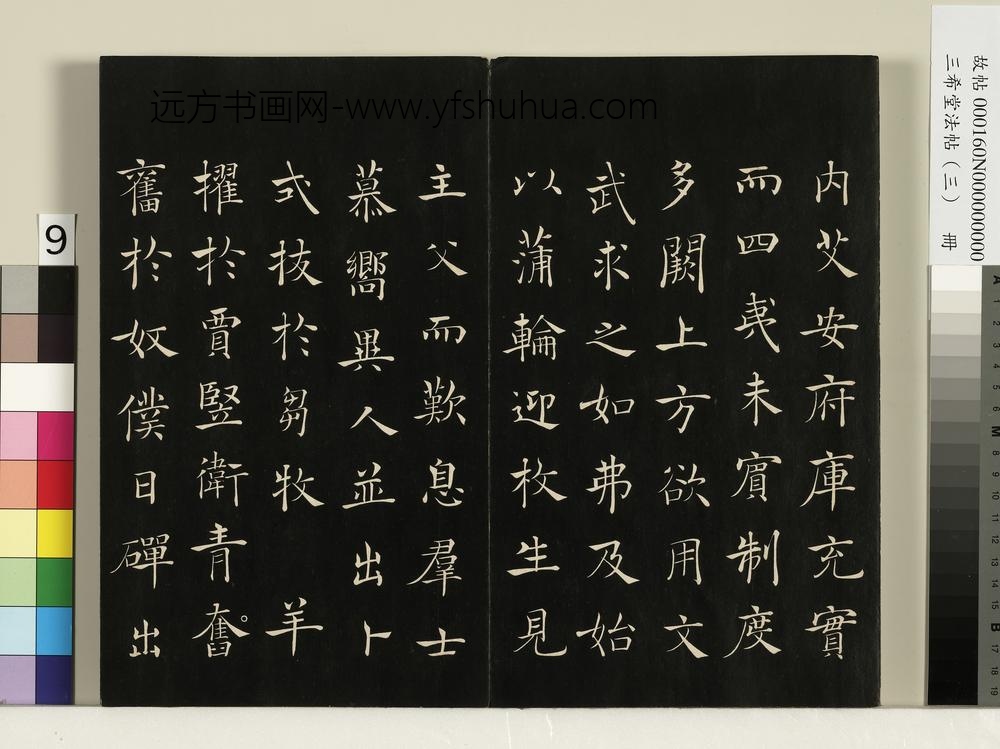 远方书画网-www.yfshuhua.com
内艾安府庫充實
而四夷未賓制度
多闕上方欲用文
武求之如弗及始
以蒲輪迎枚生見
主父而歎息羣士
慕嚮異人並出卜
式拔於芻牧 羊
擢於賈竪衛青奮
奮於奴僕日磾出
故帖 000160N000000000
三希堂法帖（三） 冊
9